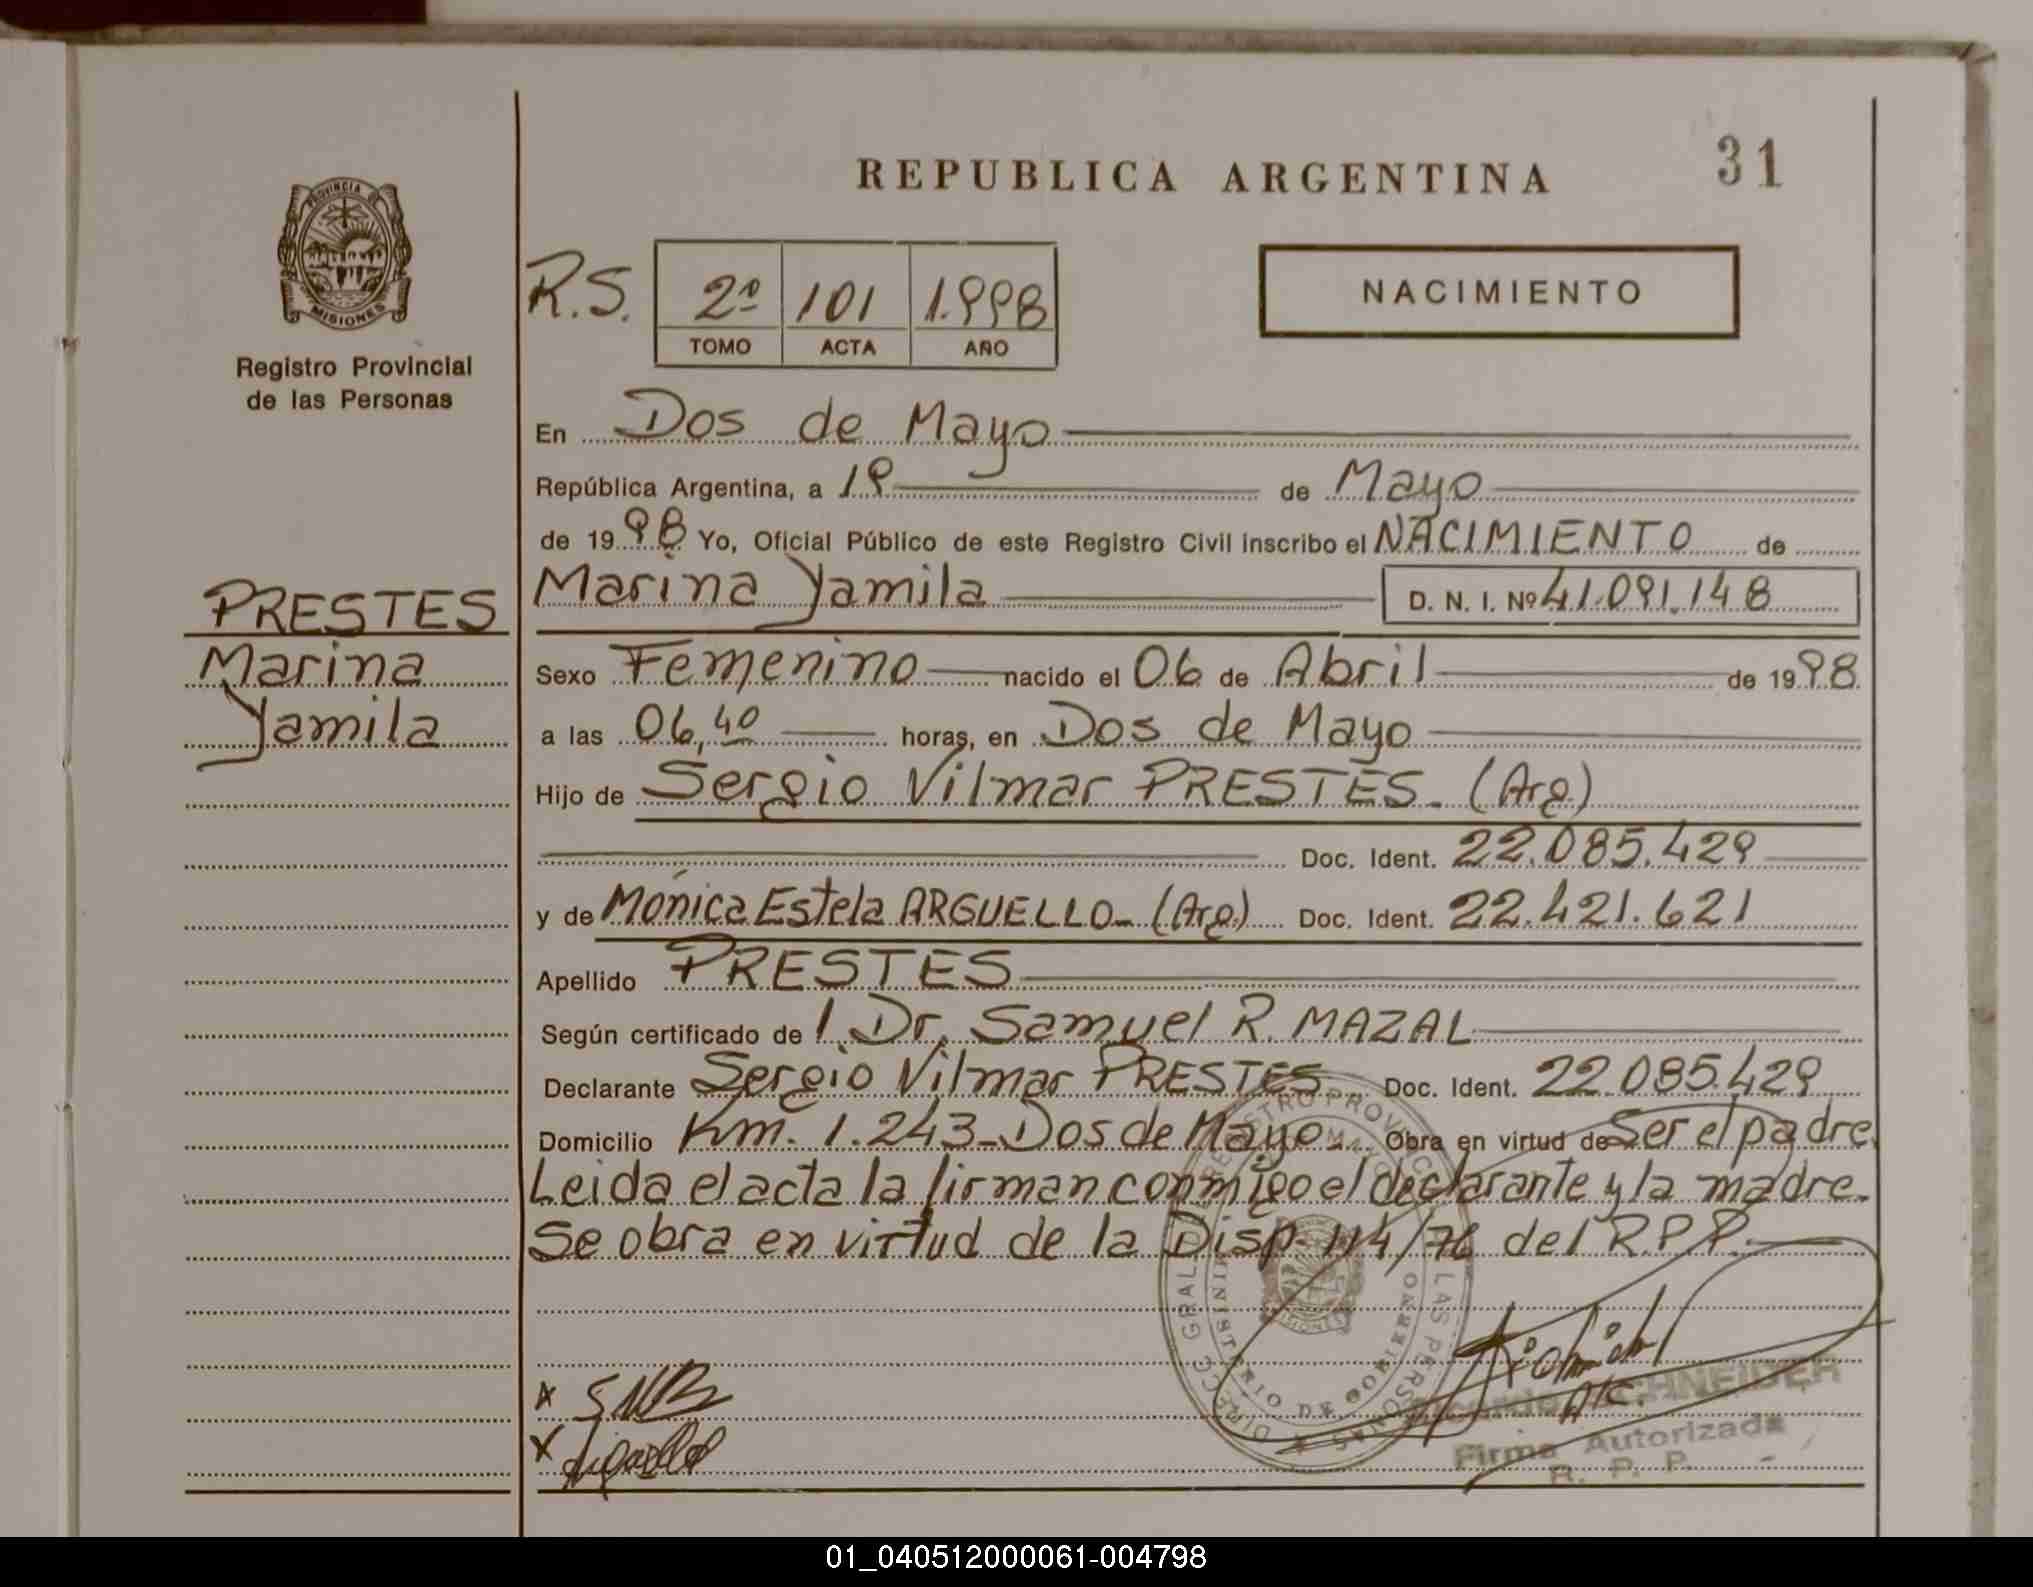 REPUBLICA ARGENTINA
31
PROVINCIA DE
MISIONES
Registro Provincial
de las Personas
R.S.
2º 101 1.998
TOMO ACTA AÑO
NACIMIENTO
En Dos de Mayo
República Argentina, a 19 de Mayo
de 1998 Yo, Oficial Público de este Registro Civil inscribo el NACIMIENTO de
Marina Yamila D. N. I. Nº 41.091.148
PRESTES
Marina
Yamila
Sexo Femenino nacido el 06 de Abril de 1998
a las 06,40 horas, en Dos de Mayo
Hijo de Sergio Vilmar PRESTES. (Arg)
Doc. Ident. 22.085.429
y de Mónica Estela ARGUELLO_ (Arg.) Doc. Ident. 22.421.621
Apellido PRESTES
Según certificado de 1 Dr. Samuel R. MAZAL
Declarante Sergio Vilmar PRESTES Doc. Ident. 22.085.429
Domicilio Km. 1.243_Dos de Mayo. Obra en virtud de Ser el padre.
Leida el acta la firman conmigo el declarante y la madre.
Se obra en virtud de la Disp. 114/76 del R.P.P.
DIRECC GRAL DEL REGISTRO PROVINCIAL DE LAS PERSONAS
MINISTERIO DE GOBIERNO
MISIONES
SCHNEIDER
Firma Autorizada
R. P. P.
01_040512000061-004798